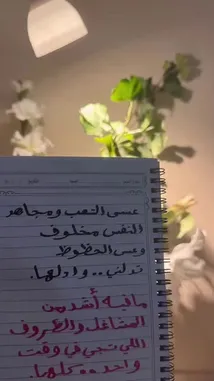 عسى التعب ومجاهد
النفس مخلوف
وعسى الحظوظ
تدلني .. وادلها.
مافيه أنقد من
المشاغل والظروف
اللي تجي في وقت
واحد .. كلها.